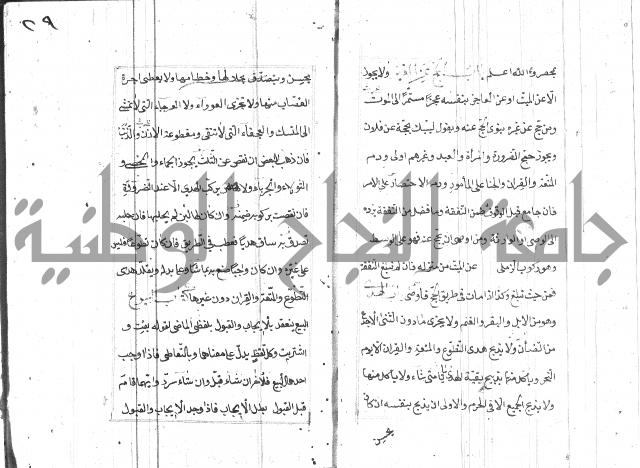 بمحصر والله اعلم باب الحج عن الغير ولا يجوز
الا عن الميت او عن العاجز بنفسه عجزا مستمرا الى الموت
ومن حج عن غيره ينوى الحج عنه ويقول لبيك بحجة عن فلان
ويجوز حج الصرورة والمرأة والعبد وغيرهم اولى ودم
المتعة والقران والجنايات على المأمور ودم الاحصار على الآمر
فان جامع قبل الوقوف ضمن النفقة وما فضل من النفقة يرده
الى الوصى او الورثة ومن اوصى ان يحج عنه فهو على الوسط
وهو ركوب الزاملة عن الميت من منزله فان لم تبلغ النفقة
فمن حيث تبلغ وكذا اذا مات فى طريق الحج فاوصى باب الهدى
وهو من الابل والبقر والغنم ولا يجزى ما دون الثنى الا الجذع
من الضأن ولا يذبح هدى التطوع والمتعة والقران الا يوم
النحر وياكل منها ويذبح بقية الهدايا متى شاء ولا ياكل منها
ولا يذبح الجميع الا فى الحرم والاولى ان يذبح بنفسه ان كان
يحسن
٢٩
يحسن ويتصدق بجلالها وخطامها ولا يعطى اجرة
القصاب منها ولا تجزى العوراء ولا العرجاء التى لا تمشى
الى المنسك ولا العجفاء التى لا تنقى ومقطوعة الاذن والذنب
فان ذهب البعض ان نقص عن الثلث يجوز الجماء والخصى و
الثولاء والجرباء ولا يركب الهدى الا عند الضرورة
فان نقصت بركوبه ضمنه وان كان لها لبن لم يحلبها فان حلبه
تصدق به ساق هديا فعطب فى الطريق فان كان تطوعا فليس
عليه غيره وان كان واجبا صنع به ما شاء وعليه بدله ويقلد هدى
التطوع والمتعة والقران دون غيرها كتاب البيوع
البيع ينعقد بالايجاب والقبول بلفظى الماضى كقوله بعت و
اشتريت وكل لفظ يدل على معناهما وبالتعاطى فاذا اوجب
احدهما البيع فالآخر ان شاء قبل وان شاء رد وايهما قام
قبل القبول بطل الايجاب فاذا وجد الايجاب والقبول
جامعة النجاح الوطنية